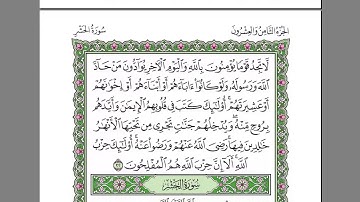 الجزء الثامن والعشرون
سورة الحشر
لَا تَجِدُ قَوْمًا يُؤْمِنُونَ بِاللَّهِ وَالْيَوْمِ الْآخِرِ يُوَادُّونَ مَنْ حَادَّ
اللَّهَ وَرَسُولَهُ وَلَوْ كَانُوا آبَاءَهُمْ أَوْ أَبْنَاءَهُمْ أَوْ إِخْوَانَهُمْ
أَوْ عَشِيرَتَهُمْ أُولَٰئِكَ كَتَبَ فِي قُلُوبِهِمُ الْإِيمَانَ وَأَيَّدَهُم
بِرُوحٍ مِّنْهُ وَيُدْخِلُهُمْ جَنَّاتٍ تَجْرِي مِن تَحْتِهَا الْأَنْهَارُ
خَالِدِينَ فِيهَا رَضِيَ اللَّهُ عَنْهُمْ وَرَضُوا عَنْهُ أُولَٰئِكَ حِزْبُ
اللَّهِ أَلَا إِنَّ حِزْبَ اللَّهِ هُمُ الْمُفْلِحُونَ ٢٢
سورة الحشر